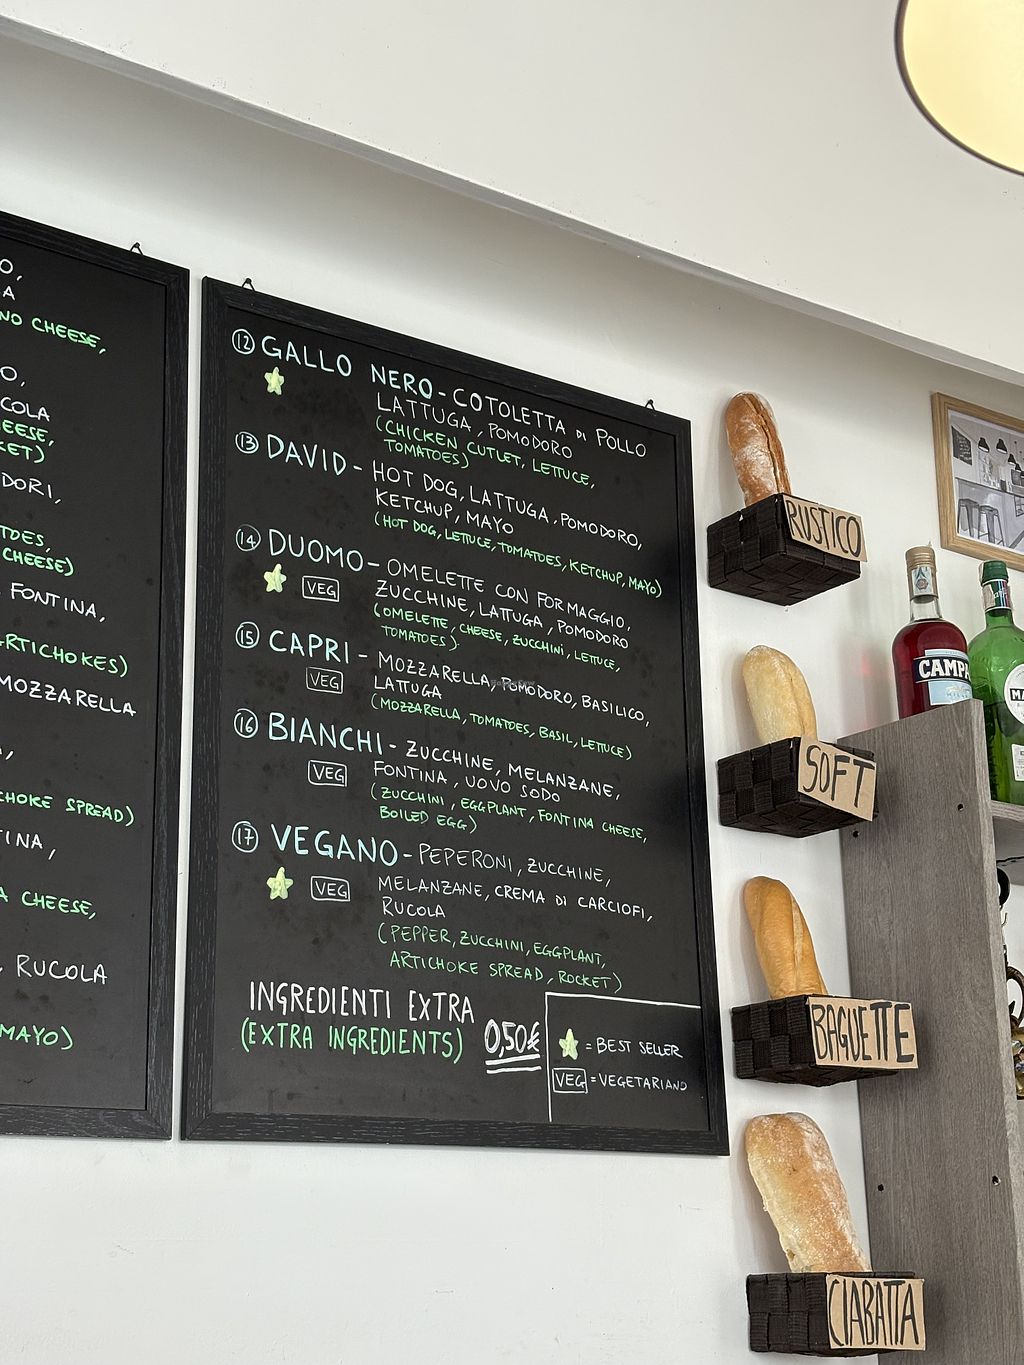 O,
A
NO CHEESE,
O,
COLA
EESE,
KET)
DORI,
TOES,
CHEESE)
FONTINA,
ARTICHOKES)
MOZZARELLA
CHOKE SPREAD)
TINA,
A CHEESE,
, RUCOLA
MAYO)
12 GALLO NERO - COTOLETTA DI POLLO
LATTUGA, POMODORO
(CHICKEN CUTLET, LETTUCE,
TOMATOES)
13 DAVID - HOT DOG, LATTUGA, POMODORO,
KETCHUP, MAYO
(HOT DOG, LETTUCE, TOMATOES, KETCHUP, MAYO)
14 DUOMO - OMELETTE CON FORMAGGIO,
VEG ZUCCHINE, LATTUGA, POMODORO
(OMELETTE, CHEESE, ZUCCHINI, LETTUCE,
TOMATOES)
15 CAPRI - MOZZARELLA, POMODORO, BASILICO,
VEG LATTUGA
(MOZZARELLA, TOMATOES, BASIL, LETTUCE)
16 BIANCHI - ZUCCHINE, MELANZANE,
VEG FONTINA, UOVO SODO
(ZUCCHINI, EGGPLANT, FONTINA CHEESE,
BOILED EGG)
17 VEGANO - PEPERONI, ZUCCHINE,
VEG MELANZANE, CREMA DI CARCIOFI,
RUCOLA
(PEPPER, ZUCCHINI, EGGPLANT,
ARTICHOKE SPREAD, ROCKET)
INGREDIENTI EXTRA
(EXTRA INGREDIENTS) 0,50€
= BEST SELLER
VEG = VEGETARIANO
RUSTICO
SOFT
BAGUETTE
CIABATTA
CAMPA
MA